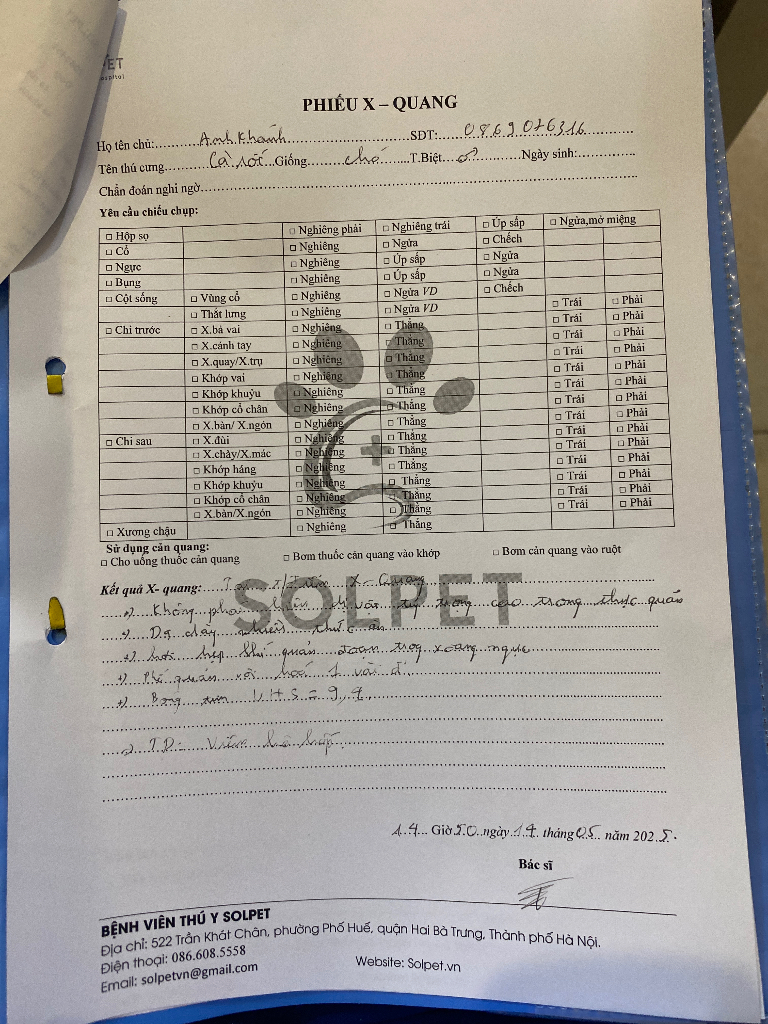 PET
ospital
PHIẾU X – QUANG
Họ tên chủ: Anh Khánh SDT: 0869076316
Tên thú cưng Cà rốt Giống chó T.Biệt ♂ Ngày sinh:
Chẩn đoán nghi ngờ
Yêu cầu chiếu chụp:
□ Hộp sọ □ Nghiêng phải □ Nghiêng trái □ Úp sấp □ Ngửa,mở miệng
□ Cổ □ Nghiêng □ Ngửa □ Chếch
□ Ngực □ Nghiêng □ Úp sấp □ Ngửa
□ Bụng □ Nghiêng □ Úp sấp □ Ngửa
□ Cột sống □ Vùng cổ □ Nghiêng □ Ngửa VD □ Chếch
□ Thắt lưng □ Nghiêng □ Ngửa VD □ Trái □ Phải
□ Chi trước □ X.bả vai □ Nghiêng □ Thẳng □ Trái □ Phải
□ X.cánh tay □ Nghiêng □ Thẳng □ Trái □ Phải
□ X.quay/X.trụ □ Nghiêng □ Thẳng □ Trái □ Phải
□ Khớp vai □ Nghiêng □ Thẳng □ Trái □ Phải
□ Khớp khuỷu □ Nghiêng □ Thẳng □ Trái □ Phải
□ Khớp cổ chân □ Nghiêng □ Thẳng □ Trái □ Phải
□ X.bàn/ X.ngón □ Nghiêng □ Thẳng □ Trái □ Phải
□ Chi sau □ X.đùi □ Nghiêng □ Thẳng □ Trái □ Phải
□ X.chày/X.mác □ Nghiêng □ Thẳng □ Trái □ Phải
□ Khớp háng □ Nghiêng □ Thẳng □ Trái □ Phải
□ Khớp khuỷu □ Nghiêng □ Thẳng □ Trái □ Phải
□ Khớp cổ chân □ Nghiêng □ Thẳng □ Trái □ Phải
□ X.bàn/X.ngón □ Nghiêng □ Thẳng
□ Xương chậu □ Nghiêng □ Thẳng
Sử dụng cản quang:
□ Cho uống thuốc cản quang □ Bơm thuốc cản quang vào khớp □ Bơm cản quang vào ruột
SOLPET
Kết quả X- quang: X-Quang
+) Không phát hiện dị vật tỷ trọng cao trong thực quản
+) Dạ dày nhiều thức ăn
+) hơi hẹp khí quản đoạn trog xoang ngực
+) Phế quản vôi hoá 1 vài
+) Bóng tim VHS = 9,4
=) TD: Viêm hô hấp
14 Giờ 50 ngày 14 tháng 05 năm 2025
Bác sĩ
BỆNH VIÊN THÚ Y SOLPET
Địa chỉ: 522 Trần Khát Chân, phường Phố Huế, quận Hai Bà Trưng, Thành phố Hà Nội.
Điện thoại: 086.608.5558
Email: solpetvn@gmail.com Website: Solpet.vn